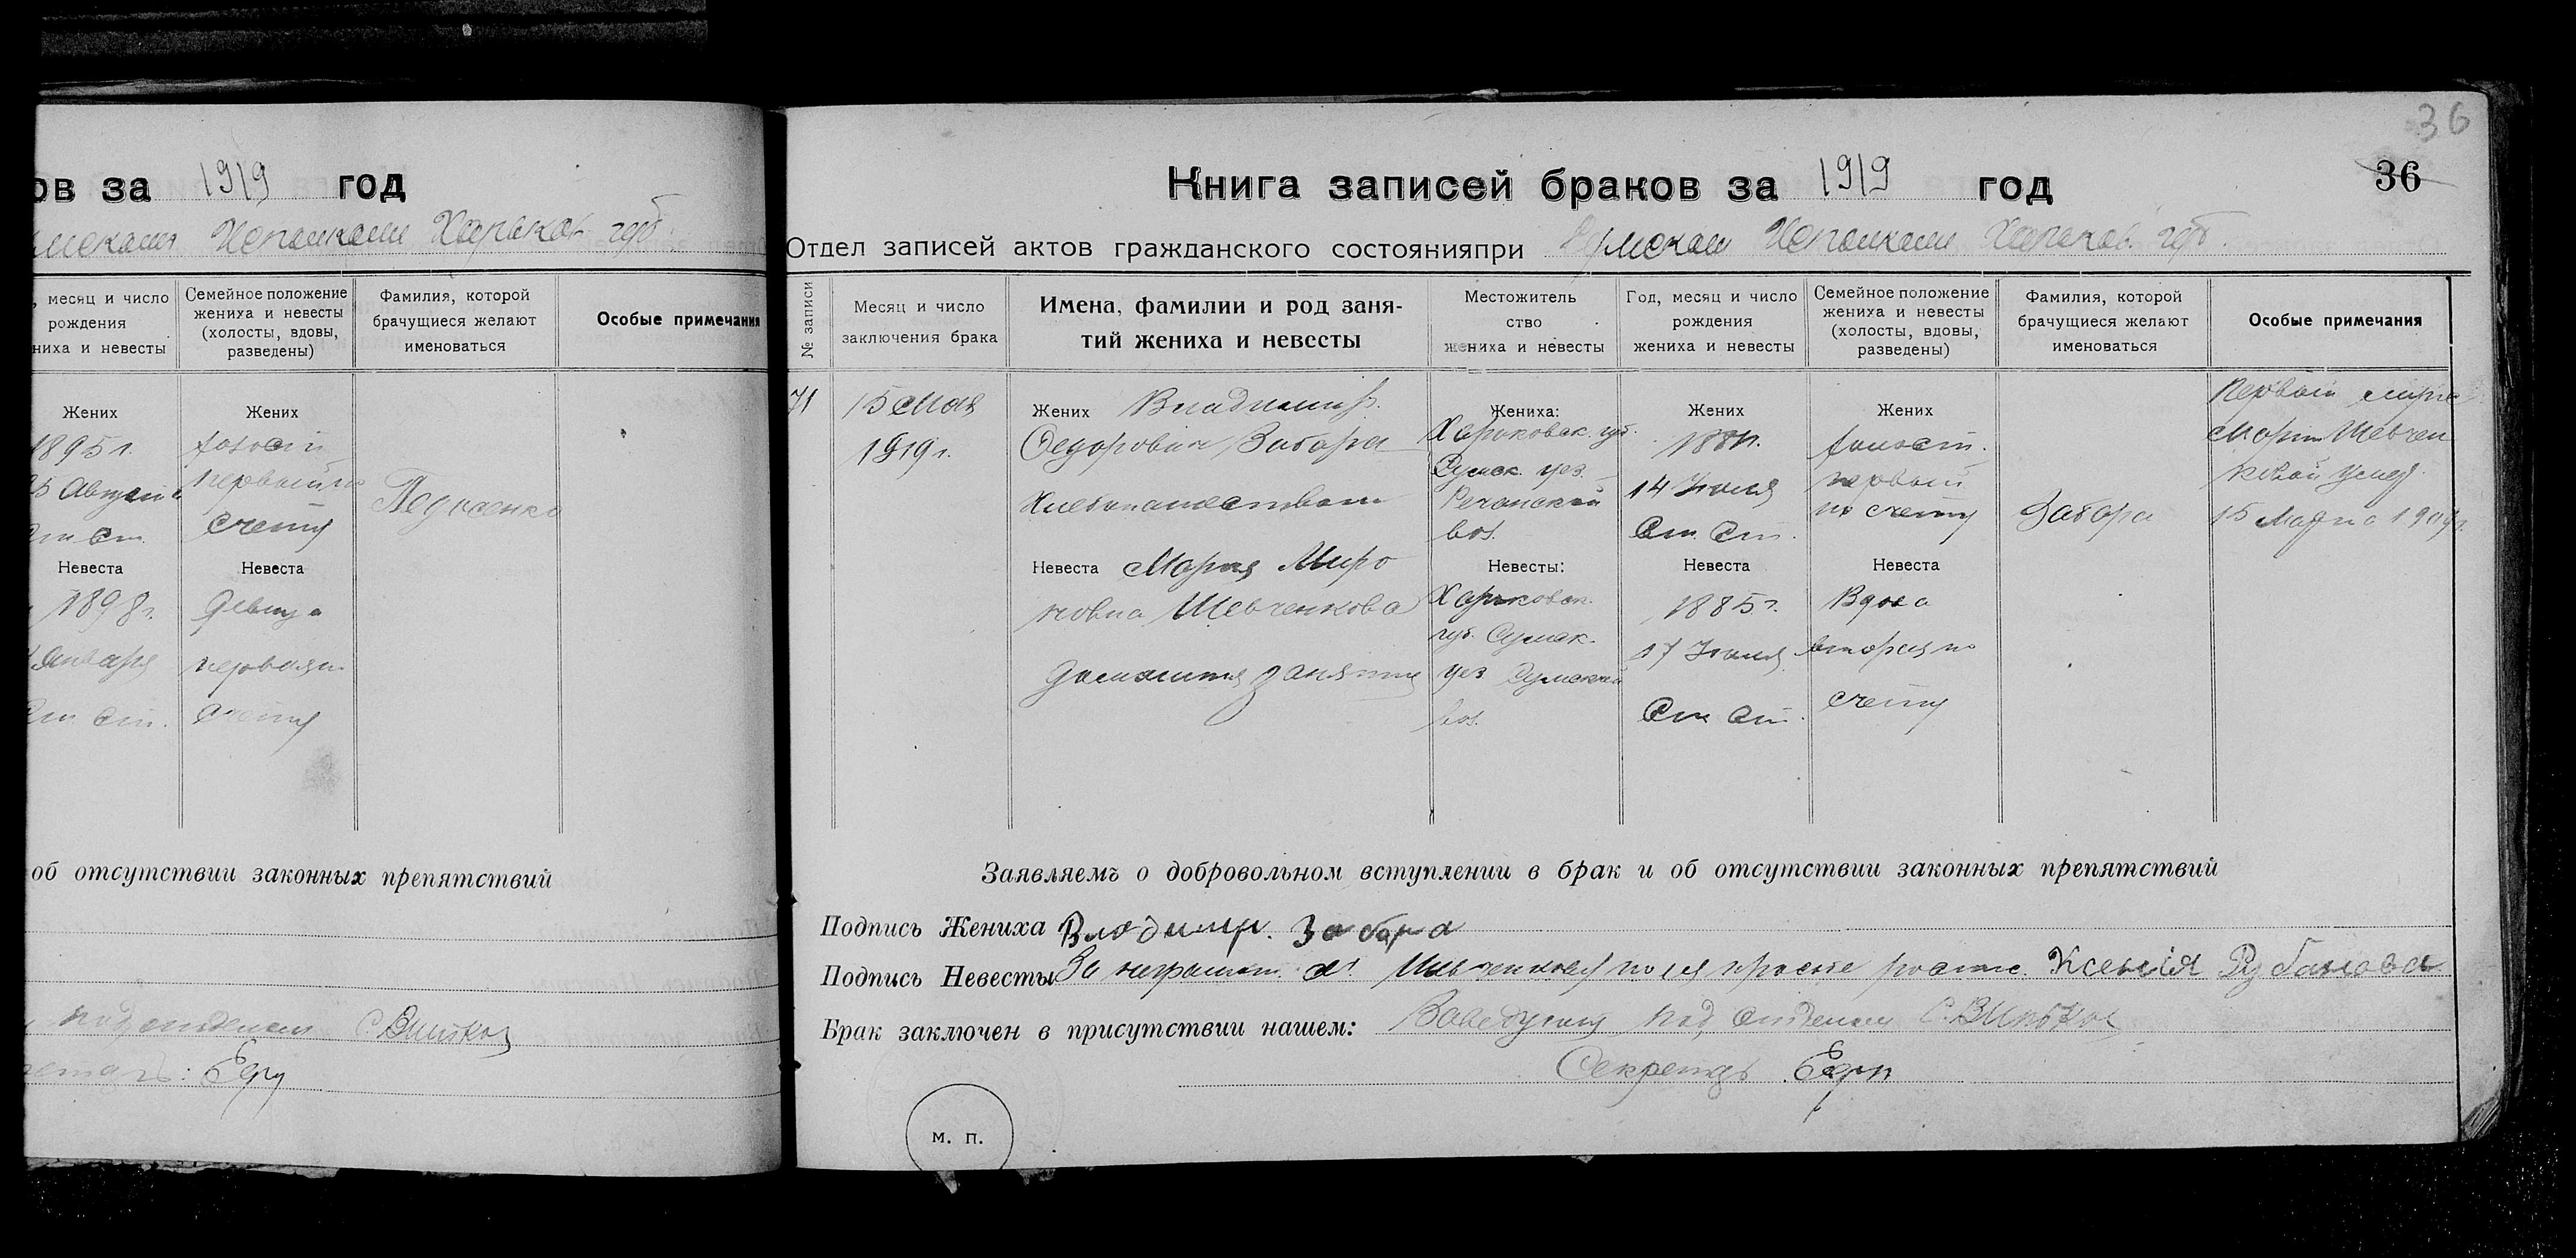 ов за 1919 год
Исполкоме Харьков. губ.
месяц и число
рождения
ниха и невесты
Семейное положение
жениха и невесты
(холосты, вдовы,
разведены)
Фамилия, которой
брачущиеся желают
именоваться
Особые примечания
Жених
Жених
1895 г.
холост
25 Августа
первый по
счету
Ст.
Невеста
Невеста
1898 г.
девица
Января
первая по
Ст. Ст.
счету
об отсутствии законных препятствий
подотделом
Едн
36
Книга записей браков за 1919 год
36
Отдел записей актов гражданского состоянияпри Сумском Исполкоме Харьков. губ.
№ записи
Месяц и число
заключения брака
Имена, фамилии и род заня-
тий жениха и невесты
Местожитель
ство
жениха и невесты
Год, месяц и число
рождения
жениха и невесты
Семейное положение
жениха и невесты
(холосты, вдовы,
разведены)
Фамилия, которой
брачущиеся желают
именоваться
Особые примечания
71
15 Мая
1919 г.
Жених Владимир
Федорович Забора
Хлебопашество
Невеста Мария Миро
новна Шевченкова
домашния занятия
Жениха:
Харьковск. губ.
Сумск. уез.
Речанской
вол.
Невесты:
Харьковск.
губ. Сумск.
уез Сумской
вол.
Жених
14 Июля
Ст. Ст.
Невеста
1885 г.
17 Июля
Ст Ст.
Жених
холост.
первый
по счету
Невеста
Вдова
вторая по
счету
Забора
Первый муж
Марии Шевчен
ковой умер
15 Марта 1909 г.
Заявляемъ о добровольном вступлении в брак и об отсутствии законных препятствий
Подпись Жениха Владимир. Забора
Подпись Невесты За неграмот. М. Шевченкову по ея просьбе роспис. Ксенія Рубанова
Брак заключен в присутствии нашем: Заведующий под отделом
Секретарь Едн
м. п.